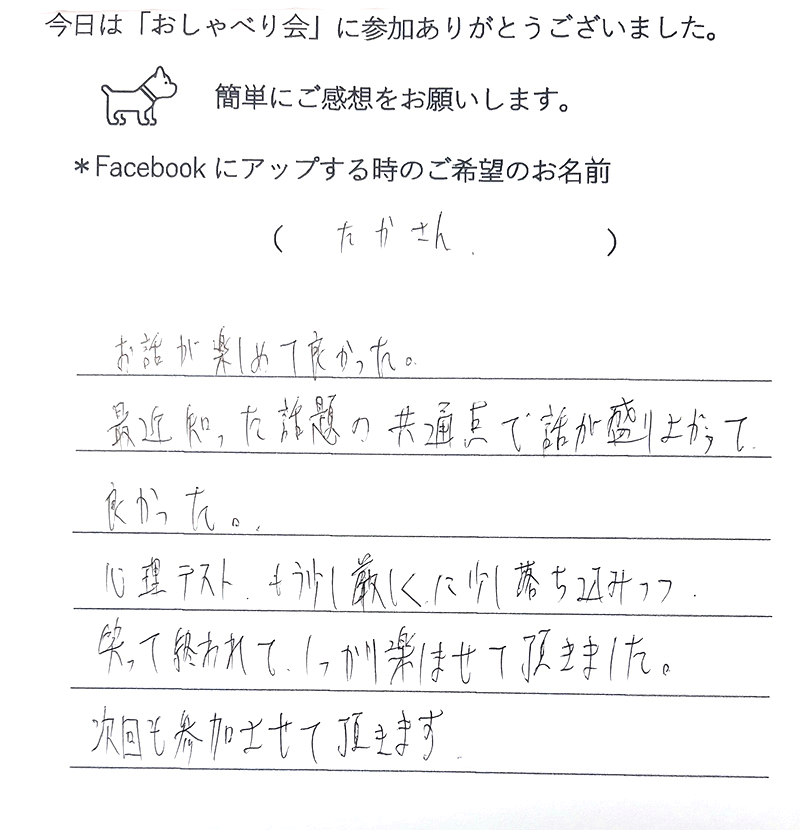 今日は「おしゃべり会」に参加ありがとうございました。
簡単にご感想をお願いします。
＊Facebookにアップする時のご希望のお名前
（ たかさん. ）
お話が楽しめて良かった。
最近知った話題の共通点で話が盛り上がって
良かった。
心理テスト、もう少し厳しく、に少し落ち込みつつ、
笑って終われて、しっかり楽しませて頂きました。
次回も参加させて頂きます.